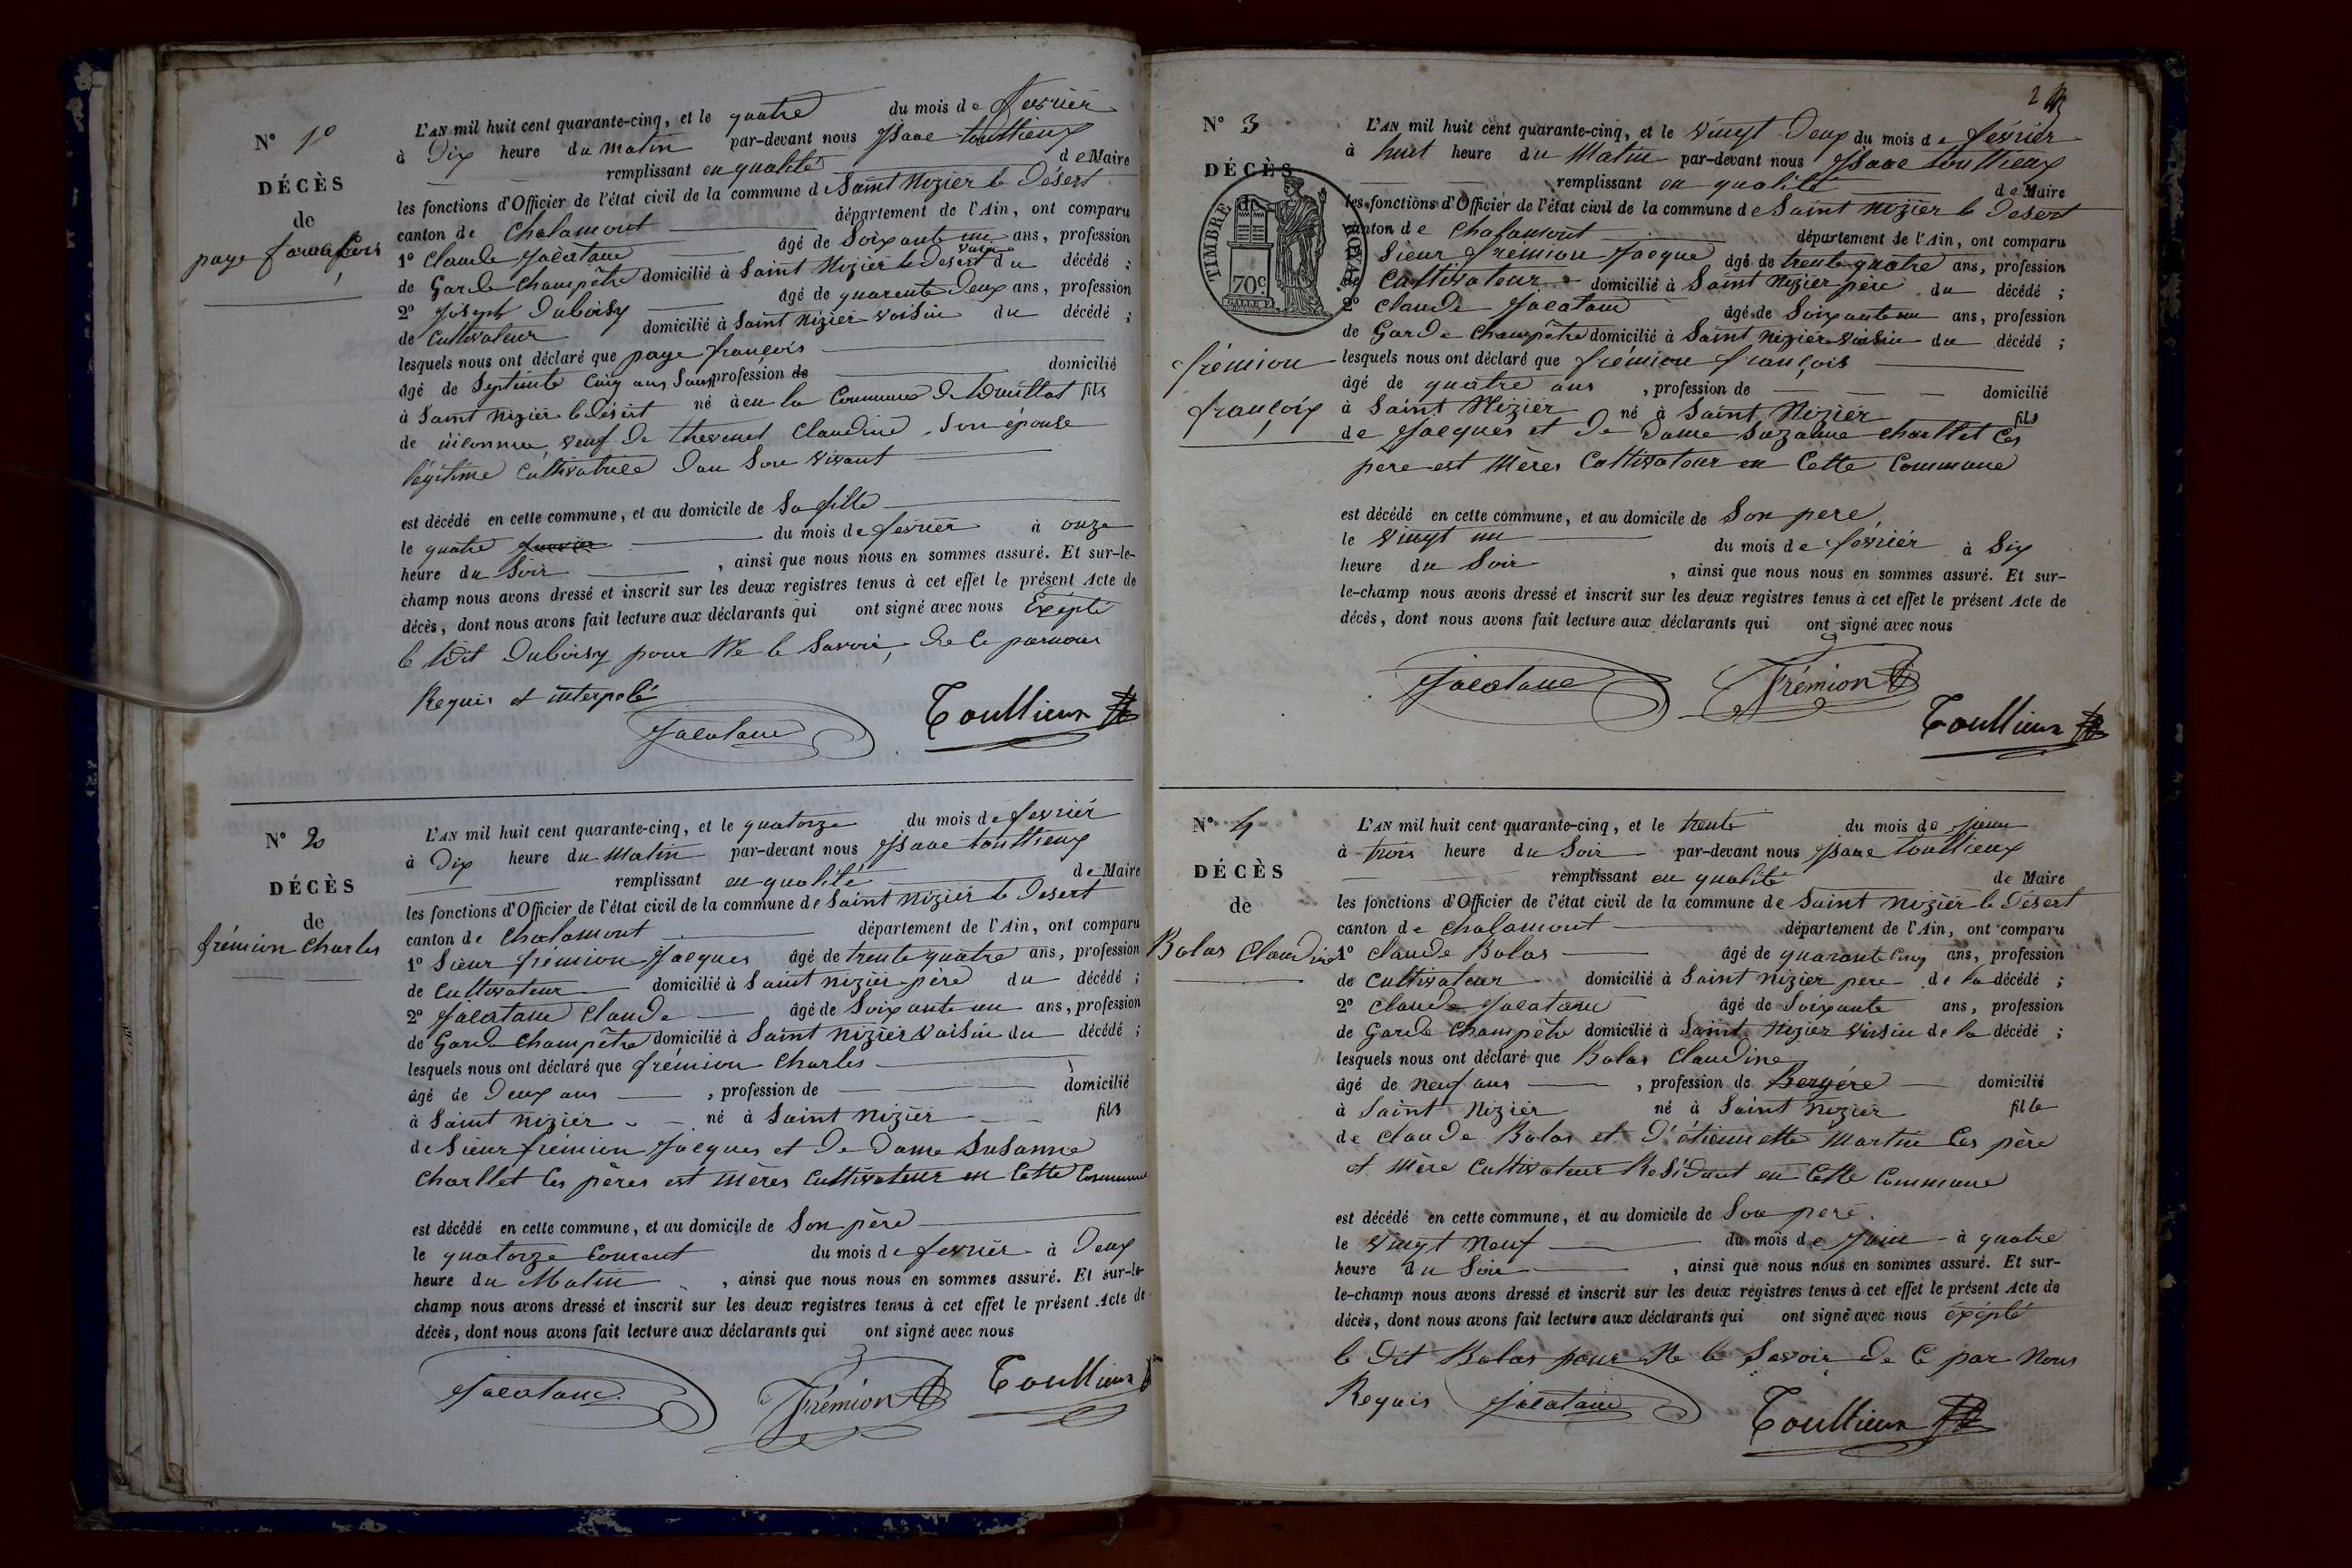 N° 1°
DÉCÈS
de
paye françois
L'AN mil huit cent quarante-cinq, et le quatre du mois de fevrier
à Dix heure du matin par-devant nous Isaac touttieux
remplissant en qualité de Maire
les fonctions d'Officier de l'état civil de la commune de Saint Nizier le Désert
canton de Chalamont département de l'Ain, ont comparu
1° Claude Jacatane âgé de Soixante un ans, profession
de Garde Champêtre domicilié à Saint Nizier le Desert voisin du décédé ;
2° Joseph Duboisy âgé de quarente Deux ans, profession
de Cultivateur domicilié à Saint Nizier voisin du décédé ;
lesquels nous ont déclaré que paye françois
âgé de Septente Cinq ans Sans profession de domicilié
à Saint Nizier le Désert né à en la Commune De fils
de inconnu, veuf De thevenet Claudine, Son épouse
légitime Cultivatrice Dau Son vivant
est décédé en cette commune, et au domicile de Sa fille
le quatre du mois de fevrier à onze
heure du Soir , ainsi que nous nous en sommes assuré. Et sur-le-
champ nous avons dressé et inscrit sur les deux registres tenus à cet effet le présent Acte de
décès, dont nous avons fait lecture aux déclarants qui ont signé avec nous Exépté
le Dit Duboisy pour Ne le Savoir, De Ce par nous
Requis et interpelé
Jacatane Touttieux
N° 2
DÉCÈS
de
frémion Charles
L'AN mil huit cent quarante-cinq, et le quatorze du mois de fevrier
à Dix heure du Matin par-devant nous Isaac touttieux
remplissant en qualité de Maire
les fonctions d'Officier de l'état civil de la commune de Saint Nizier le Desert
canton de Chalamont département de l'Ain, ont comparu
1° Sieur frémion Jacques âgé de trente quatre ans, profession
de Cultivateur domicilié à Saint Nizier père du décédé ;
2° Jacatane Claude âgé de Soixante un ans, profession
de Garde Champêtre domicilié à Saint Nizier voisin du décédé ;
lesquels nous ont déclaré que frémion Charles
âgé de Deux ans , profession de domicilié
à Saint Nizier né à Saint Nizier fils
de Sieur frémion Jacques et De Dame Susanne
Charllet Ces pères est mères Cultivateur en Cette Commune
est décédé en cette commune, et au domicile de Son père
le quatorze Courant du mois de fevrier à Deux
heure du Matin , ainsi que nous nous en sommes assuré. Et sur-le-
champ nous avons dressé et inscrit sur les deux registres tenus à cet effet le présent Acte de
décès, dont nous avons fait lecture aux déclarants qui ont signé avec nous
Jacatane Frémion Touttieux
2
N° 3
DÉCÈS
de
TIMBRE ROYAL
70c
frémion
françois
L'AN mil huit cent quarante-cinq, et le vingt Deux du mois de février
à huit heure du Matin par-devant nous Isaac touttieux
remplissant en qualité de Maire
les fonctions d'Officier de l'état civil de la commune de Saint Nizier le Desert
canton de Chalamont département de l'Ain, ont comparu
Sieur frémion Jacque âgé de trente quatre ans, profession
de Cultivateur domicilié à Saint Nizier père du décédé ;
2° Claude Jacatane âgé de Soixante un ans, profession
de Garde Champêtre domicilié à Saint Nizier voisin du décédé ;
lesquels nous ont déclaré que frémion françois
âgé de quatre ans , profession de domicilié
à Saint Nizier né à Saint Nizier fils
de Jacques et De Dame Suzanne Charllet Ces
père est Mères Cultivateur en Cette Commune
est décédé en cette commune, et au domicile de Son pere
le vingt un du mois de février à Six
heure du Soir , ainsi que nous nous en sommes assuré. Et sur-
le-champ nous avons dressé et inscrit sur les deux registres tenus à cet effet le présent Acte de
décès, dont nous avons fait lecture aux déclarants qui ont signé avec nous
Jacatane Frémion Touttieux
N° 4
DÉCÈS
de
Bolas Claudine
L'AN mil huit cent quarante-cinq, et le trente du mois de juin
à trois heure du Soir par-devant nous Isaac touttieux
remplissant en qualité de Maire
les fonctions d'Officier de l'état civil de la commune de Saint Nizier le Désert
canton de Chalamont département de l'Ain, ont comparu
1° Claude Bolas âgé de quarante Cinq ans, profession
de Cultivateur domicilié à Saint Nizier pere de la décédé ;
2° Claude Jacatane âgé de Soixante ans, profession
de Garde Champêtre domicilié à Saint Nizier voisin de la décédé ;
lesquels nous ont déclaré que Bolas Claudine
âgé de Neuf ans , profession de Bergère domicilié
à Saint Nizier né à Saint Nizier fille
de Claude Bolas et D'étiennette Martin Ces père
et Mère Cultivateur Résidant en Cette Commune
est décédé en cette commune, et au domicile de Son pere.
le vingt Neuf du mois de Juin à quatre
heure du Soir , ainsi que nous nous en sommes assuré. Et sur-
le-champ nous avons dressé et inscrit sur les deux registres tenus à cet effet le présent Acte de
décès, dont nous avons fait lecture aux déclarants qui ont signé avec nous éxépté
le Dit Bolas pour Ne le Savoir De Ce par Nous
Requis Jacatane Touttieux